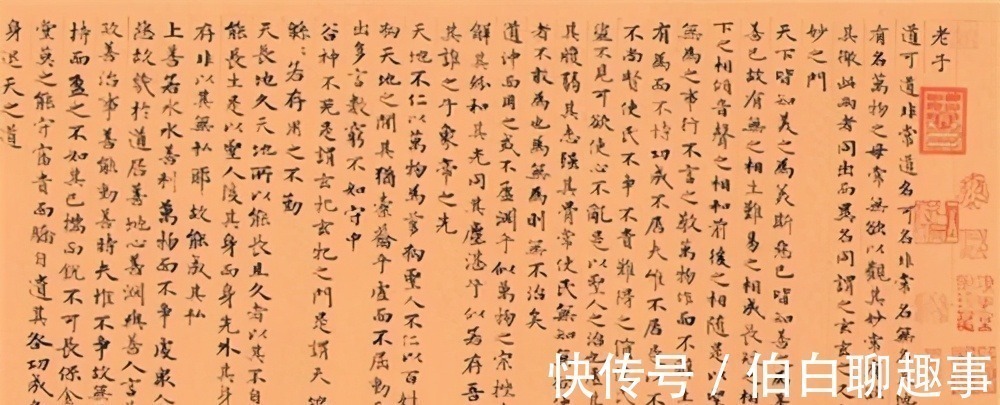 老子
道可道非常道名可名非常名無名
有名萬物之母常無欲以觀其妙常
其徼此兩者同出而異名同謂之玄玄
妙之門
天下皆知美之為美斯惡已皆知善
善已故有無之相生難易之相成長
下之相傾音聲之相和前後之相隨是以
無為之事行不言之教萬物作而不
有為而不恃功成不居夫唯不居是
不尚賢使民不爭不貴難得之貨
盜不見可欲使心不亂是以聖人之治
其腹弱其志強其骨常使民無知
者不敢為也為無為則無不治矣
道沖而用之或不盈淵乎似萬物之宗挫
解其紛和其光同其塵湛乎似若存吾
其誰之子象帝之先
天地不仁以萬物為芻狗聖人不仁以百姓
狗天地之間其猶橐籥乎虛而不屈動
出多言數窮不如守中
谷神不死是謂玄牝玄牝之門是謂天
緜緜若存用之不勤
天長地久天地所以能長且久者以其不自
能長生是以聖人後其身而身先外其身
存非以其無私耶故能成其私
上善若水水善利萬物而不爭處眾人
惡故幾於道居善地心善淵與善人言
政善治事善能動善時夫唯不爭故無
持而盈之不如其已揣而銳不可長保金
堂莫之能守富貴而驕自遺其咎功成名
身退天之道
快传号/伯白聊趣事